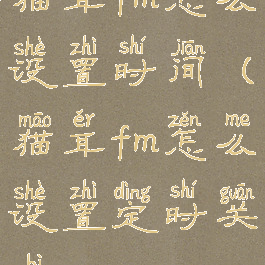 猫耳fm怎么
shè zhì shí jiān
设置时间（
māo ěr zěn me
猫耳fm怎么
shè zhì dìng shí guān
设置定时关
bì